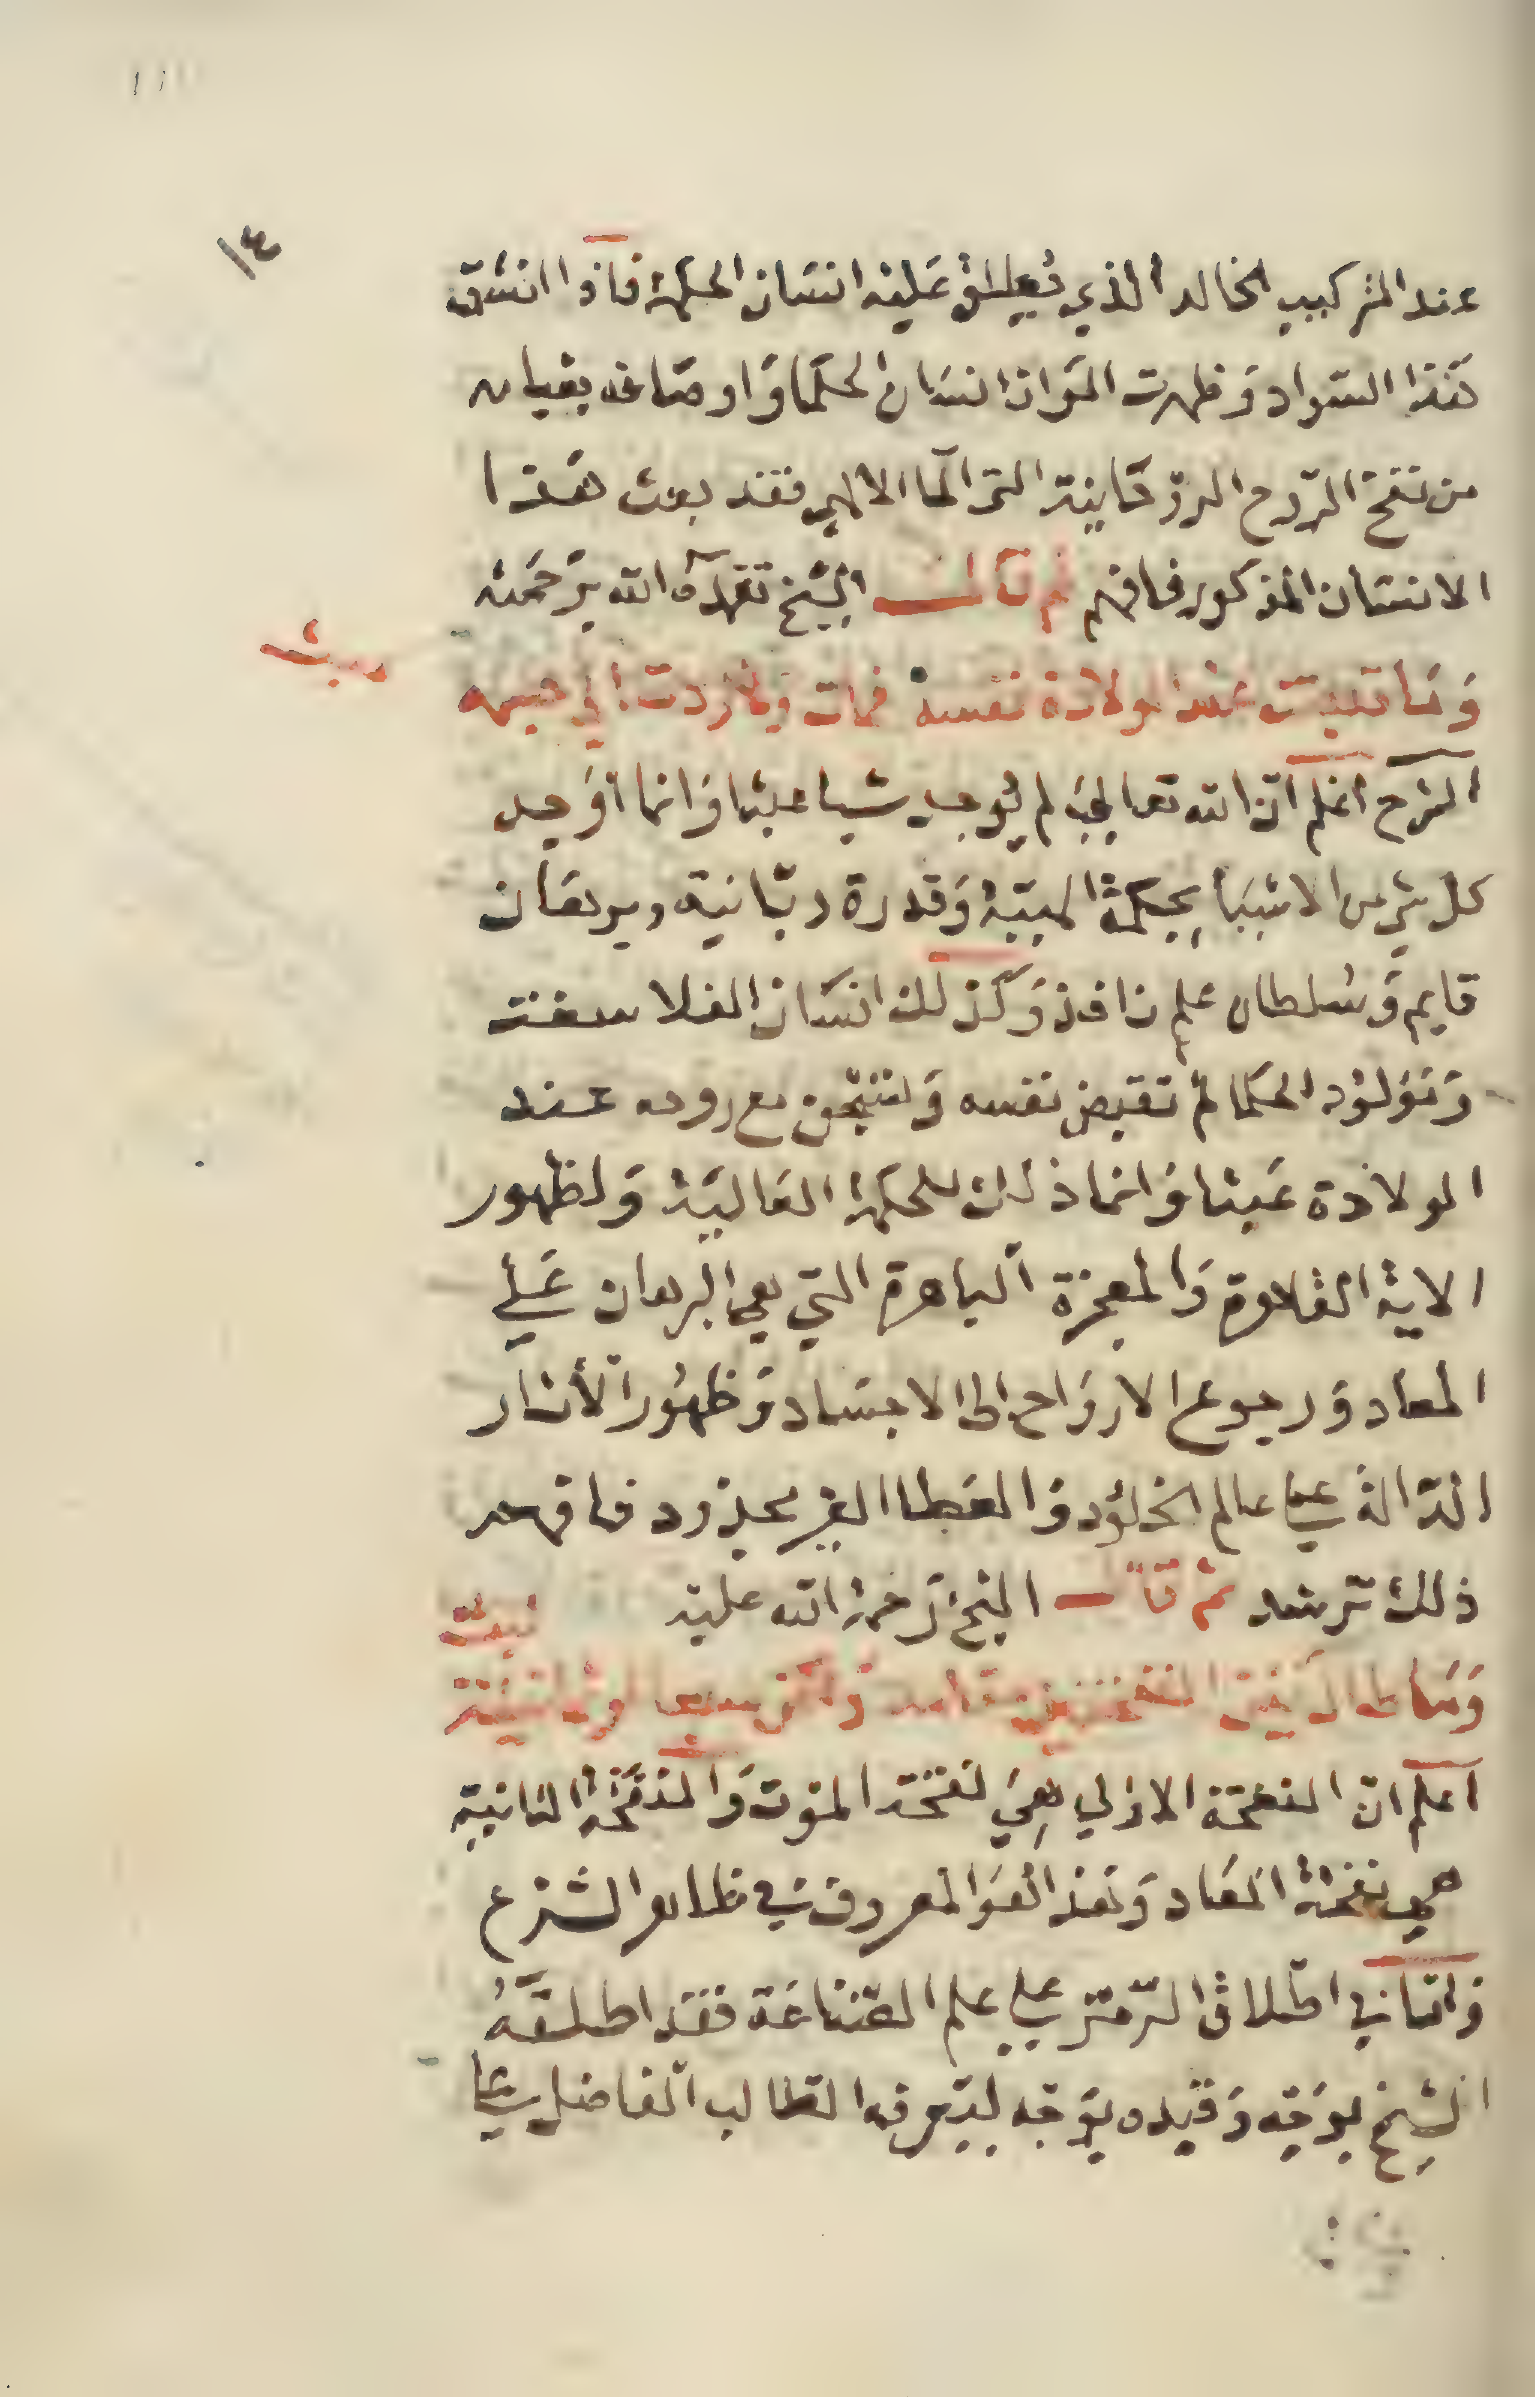 ١٤
عند التركيب الخالد الذي يطلق عليه انسان الحكمة فاذا انشق
هذا السواد وظهرت الوان انسان الحكما واوصافه بقيامه
من نفخ الروح الروحانية الترا الما الالهي فقد بعث هذا
الانسان المذكور فافهم ثم قال الشيخ تغمده الله برحمته
بيت
وما قبضت عند الولادة نفسه فمات ولا ردت الي جسمه
الشرح اعلم ان الله تعالي لم يوجد شيا عبثا وانما اوجد
كل شي من الاشيا بحكمة الهية وقدرة ربانية وبرهان
قايم وسلطان علم نافذ وكذلك انسان الفلاسفة
ومولود الحكما لم تقبض نفسه وتنتجن مع روحه عند
الولادة عبثا وانما ذلك للحكمة العالية ولظهور
الاية الظاهرة والمعجزة الباهرة التي هي البرهان علي
المعاد ورجوع الارواح الى الاجساد وظهور الأثار
الدالة علي عالم الخلود والعطا الغير مجذوذ فافهم
ذلك ترشد ثم قال الشيخ رحمة الله عليه
بيت
وما طال بين النفختين
اعلم ان النفخة الاولي هي نفخة الموت والنفخة الثانية
هي نفخة المعاد وهذا هو المعروف في ظاهر الشرع
واما في اطلاق الرمز علي علم الصناعة فقد اطلقه
الشيخ بوجه وقيده بوجه ليتعرف الطالب الفاضل علي